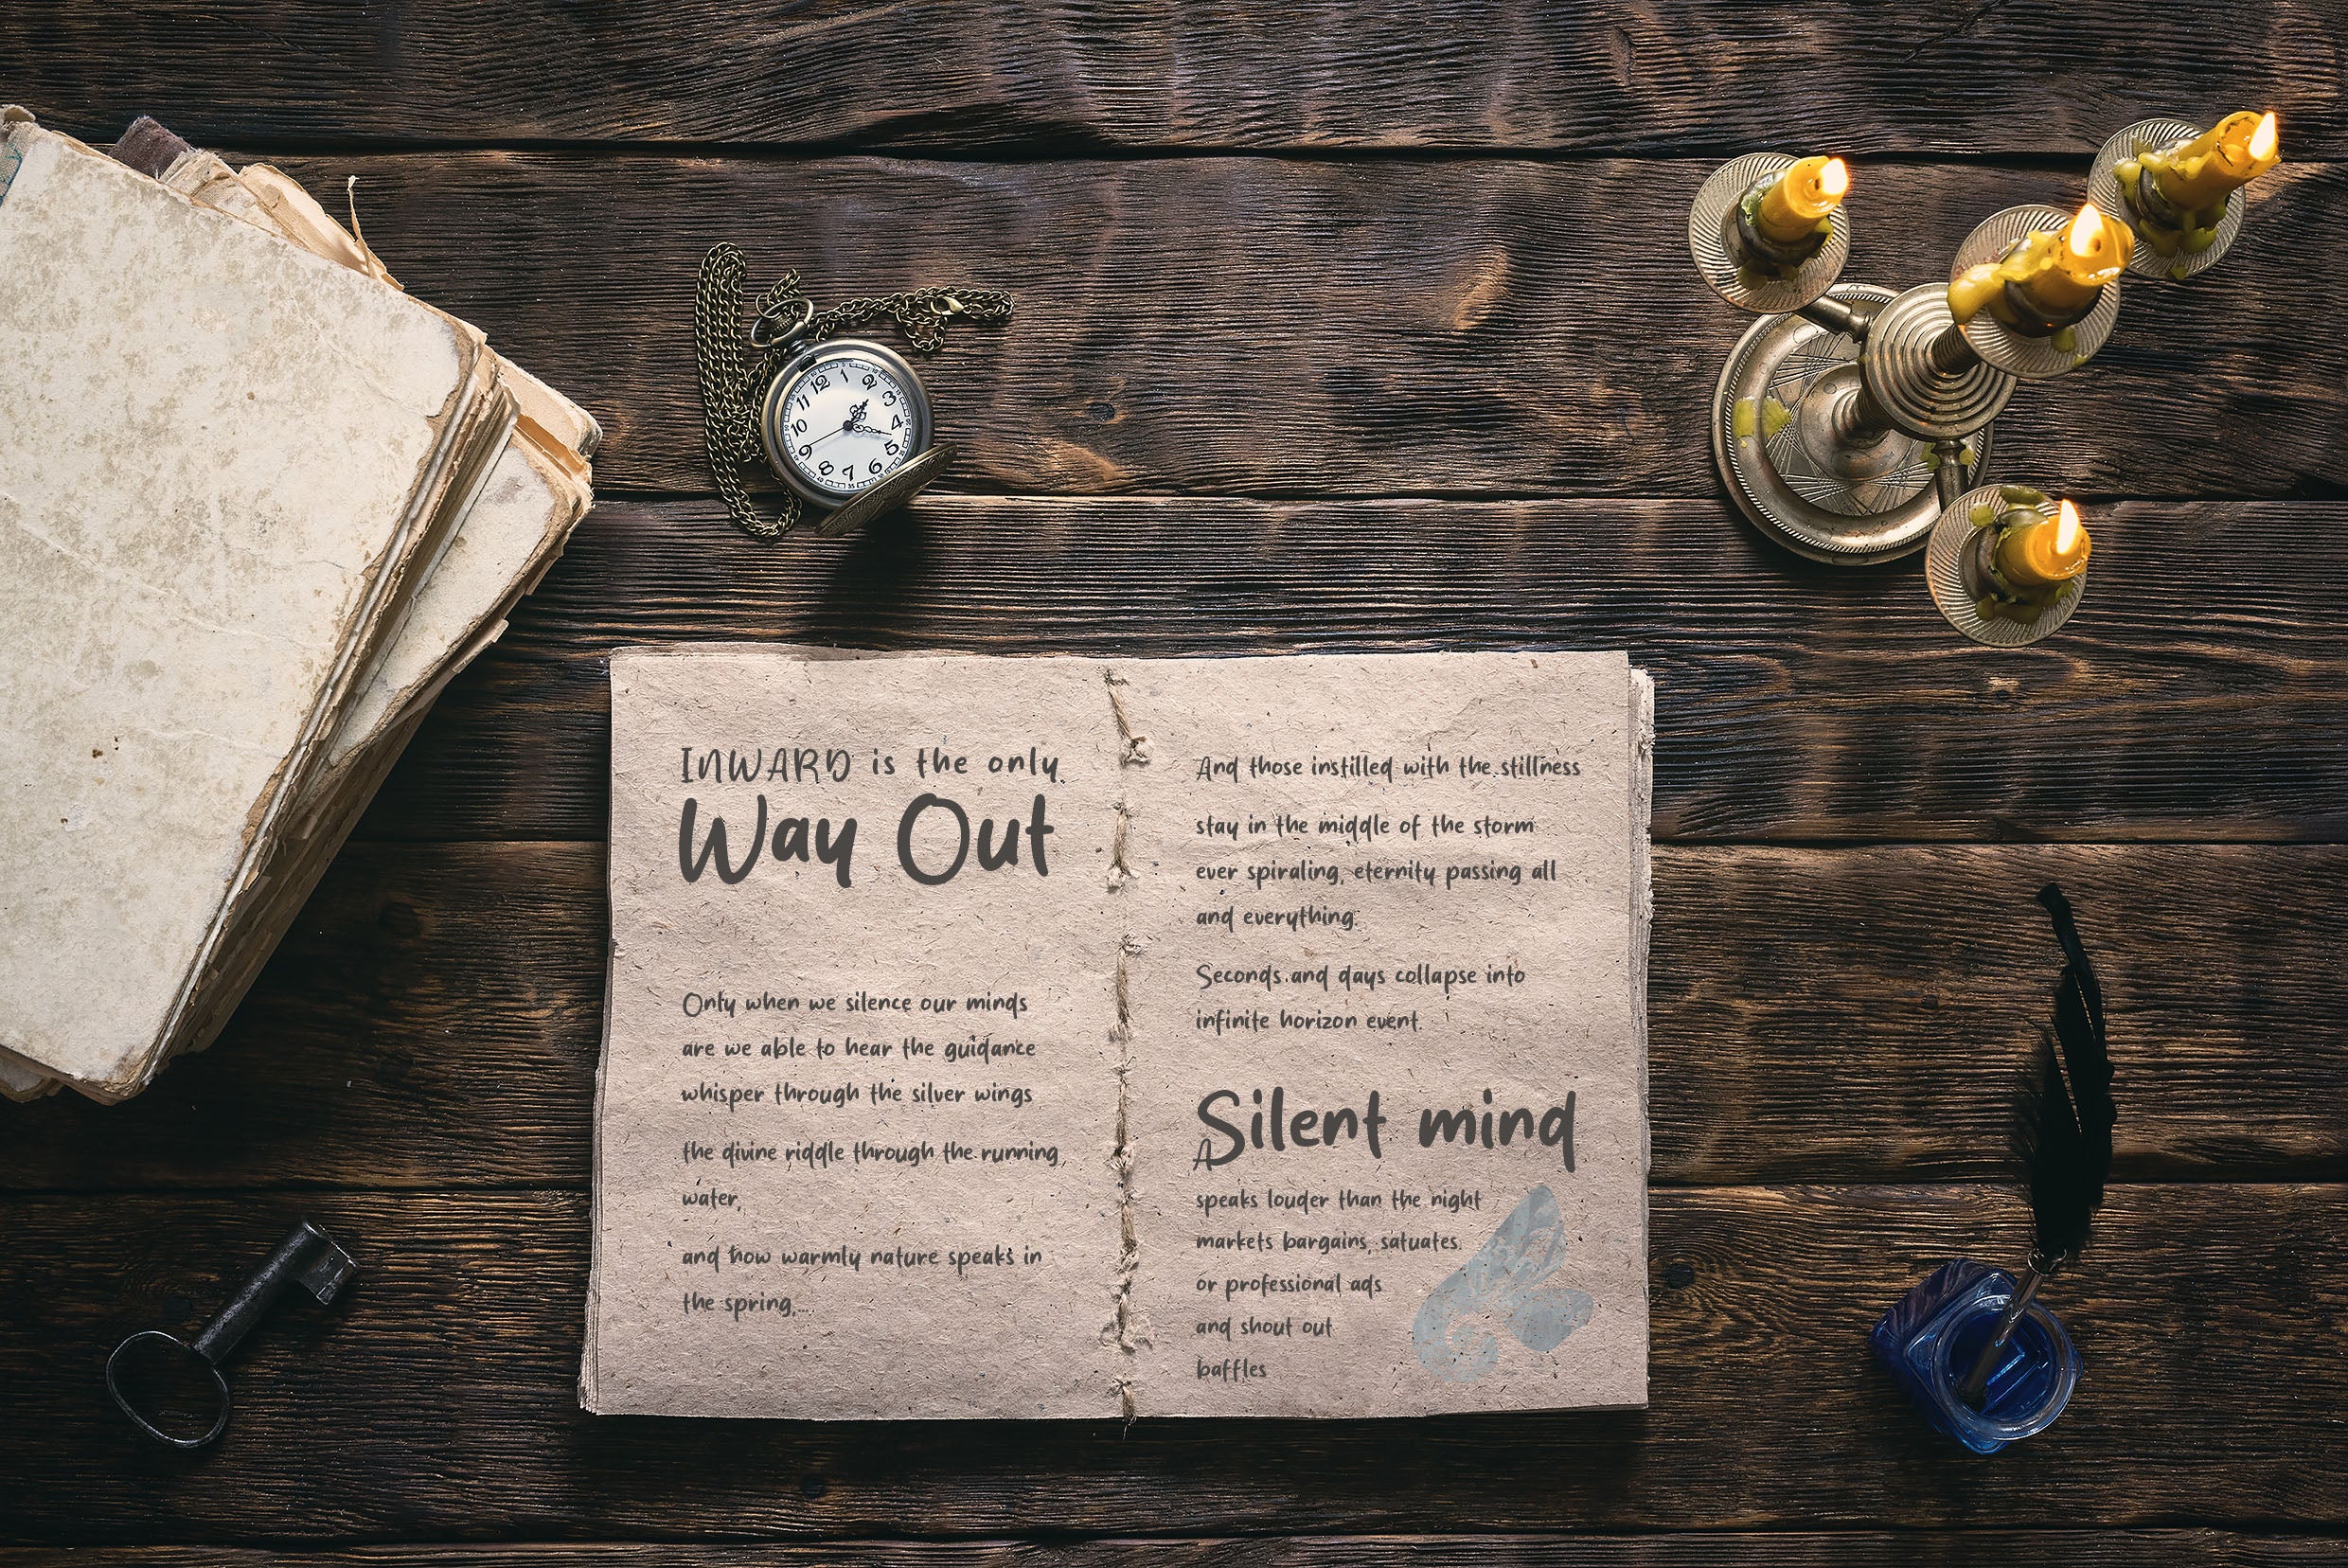 12
1
2
3
4
5
6
7
8
9
10
11
INWARD is the only
Way Out
Only when we silence our minds
are we able to hear the guidance
whisper through the silver wings
the divine riddle through the running
water,
and how warmly nature speaks in
the spring,...
And those instilled with the stillness
stay in the middle of the storm
ever spiraling, eternity passing all
and everything.
Seconds and days collapse into
infinite horizon event.
A Silent mind
speaks louder than the night
markets bargains, satuates.
or professional ads
and shout out
baffles